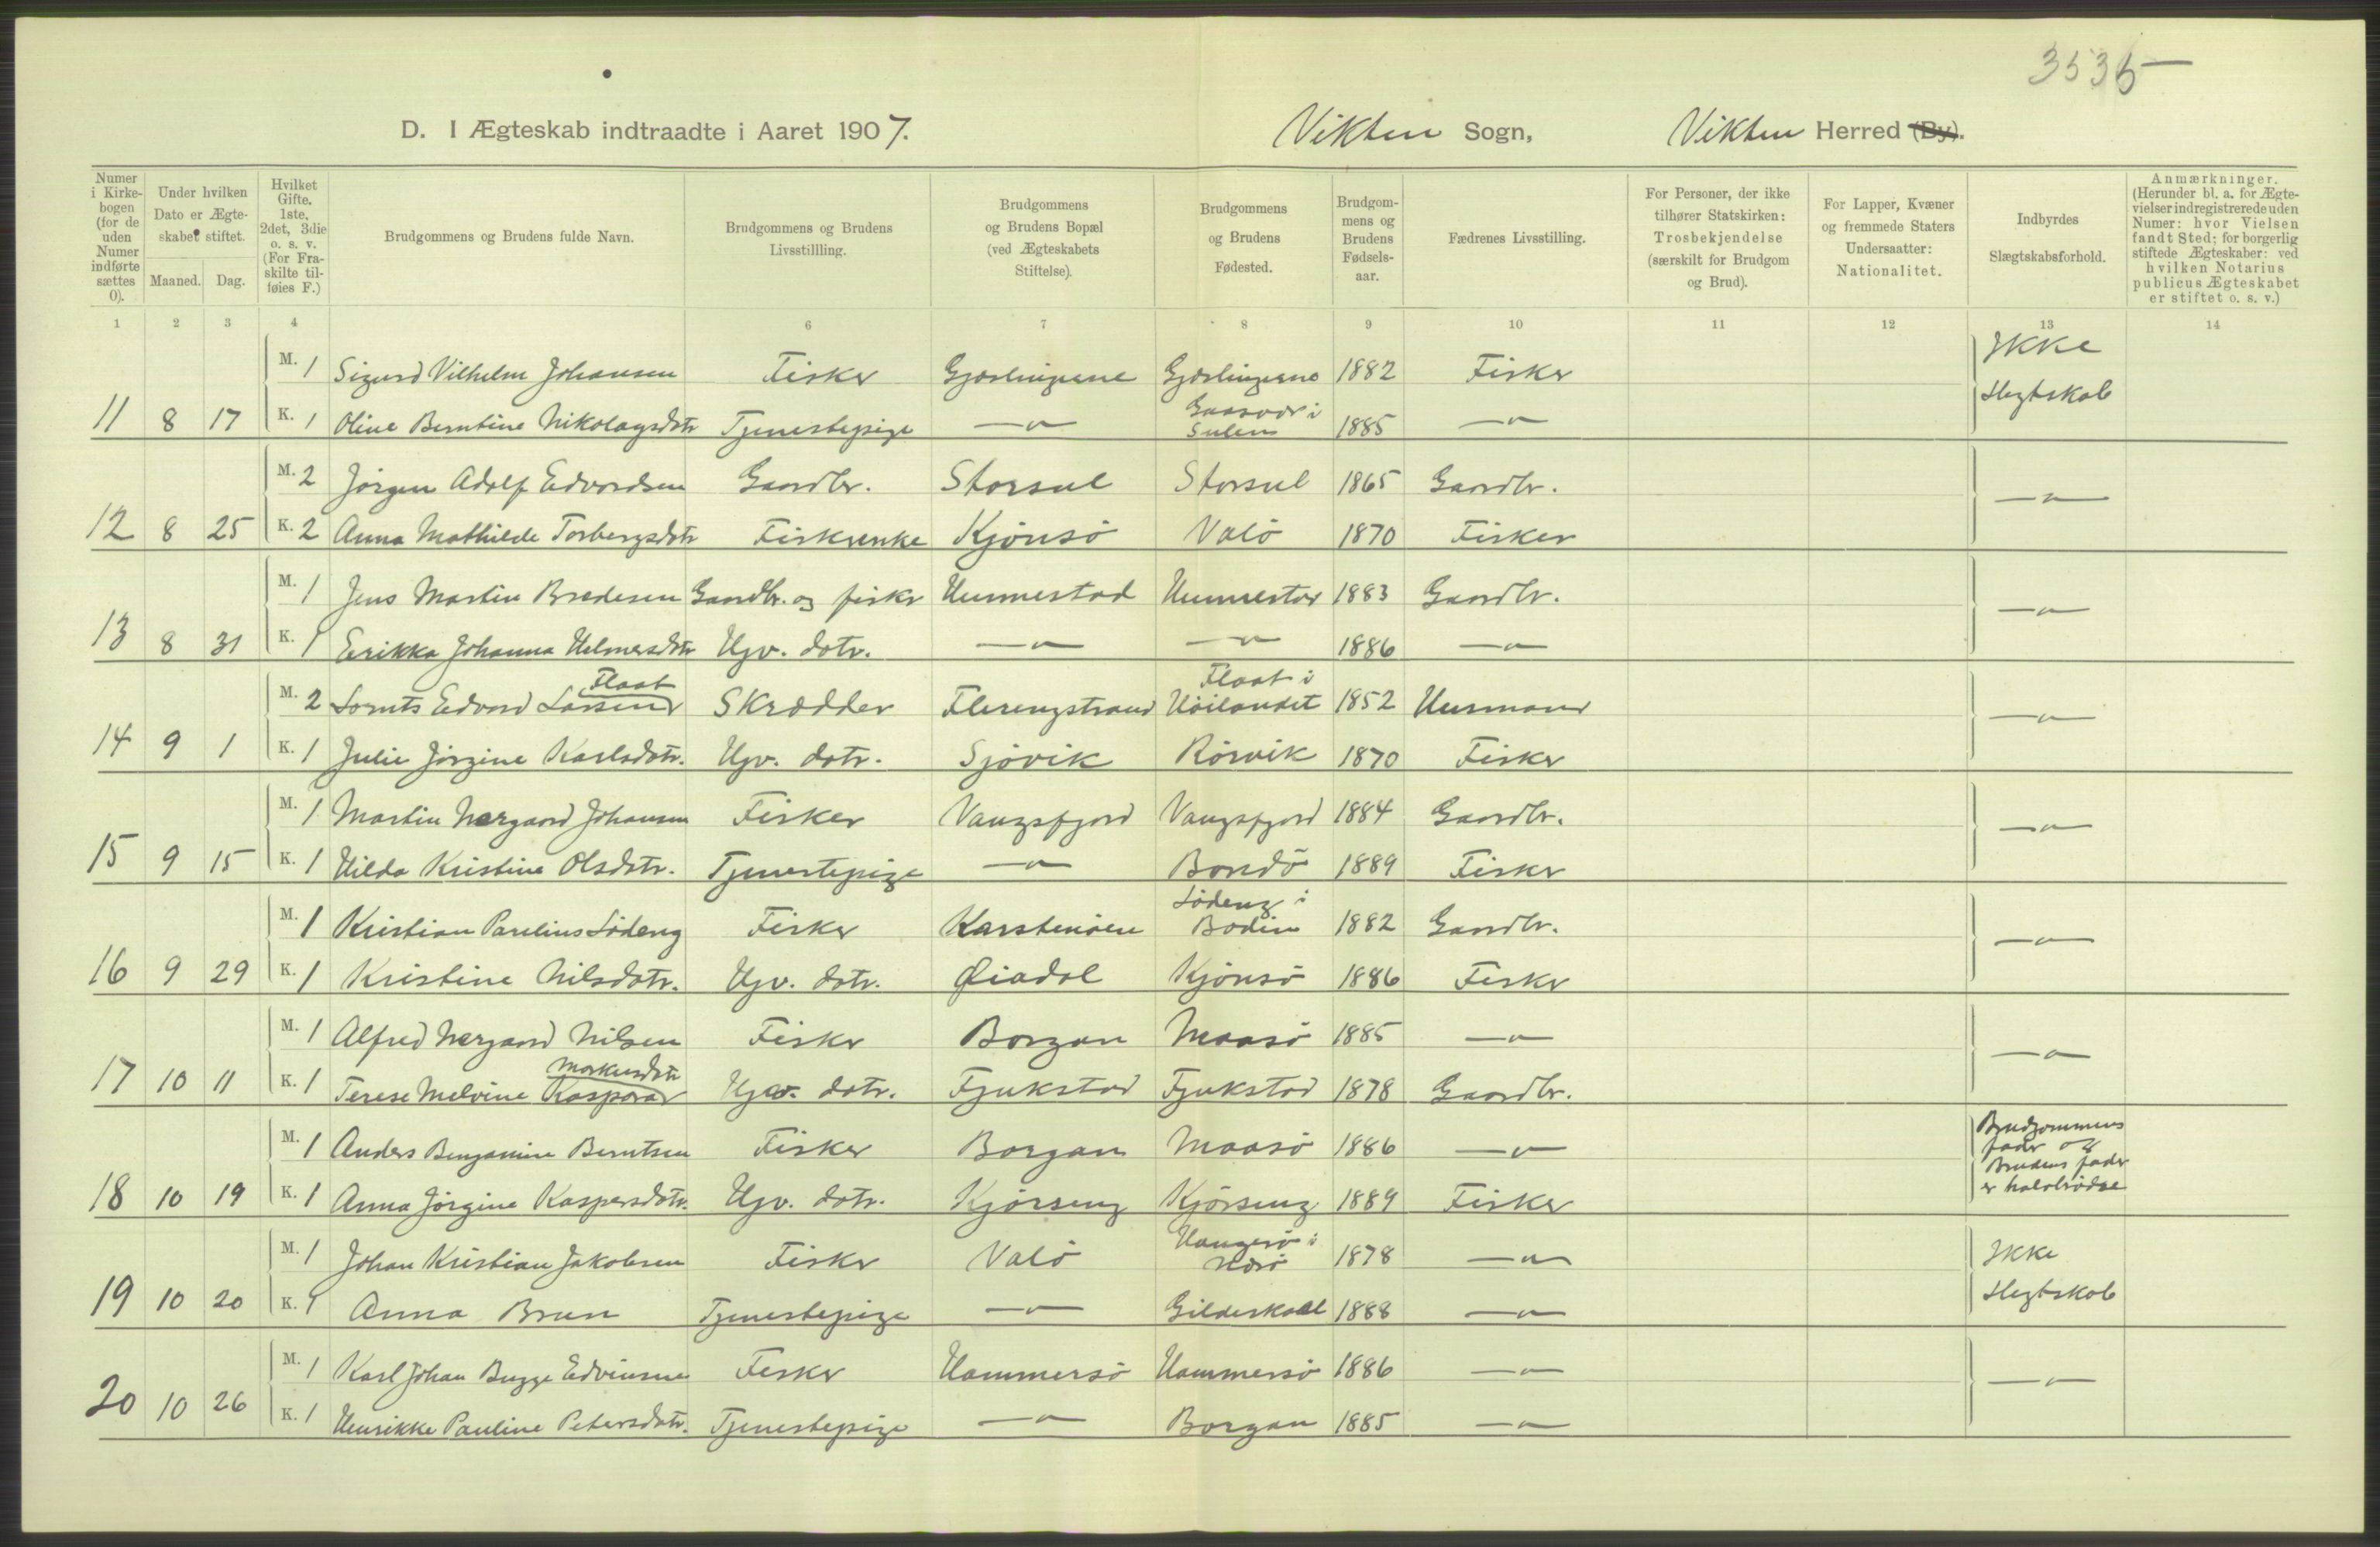 3535
D. I Ægteskab indtraadte i Aaret 1907. Vikten Sogn, Vikten Herred (By).
Numer i Kirkebogen (for de uden Numer indførte sættes 0).
Under hvilken Dato er Ægteskabet stiftet.
Maaned. Dag.
Hvilket Gifte. 1ste, 2det, 3die o. s. v. (For Fraskilte tilføies F.)
Brudgommens og Brudens fulde Navn.
Brudgommens og Brudens Livsstillling.
Brudgommens og Brudens Bopæl (ved Ægteskabets Stiftelse).
Brudgommens og Brudens Fødested.
Brudgommens og Brudens Fødselsaar.
Fædrenes Livsstilling.
For Personer, der ikke tilhører Statskirken: Trosbekjendelse (særskilt for Brudgom og Brud).
For Lapper, Kvæner og fremmede Staters Undersaatter: Nationalitet.
Indbyrdes Slægtskabsforhold.
Anmærkninger. (Herunder bl. a. for Ægtevielser indregistrerede uden Numer: hvor Vielsen fandt Sted; for borgerlig stiftede Ægteskaber: ved hvilken Notarius publicus Ægteskabet er stiftet o. s. v.)
1 2 3 4 6 7 8 9 10 11 12 13 14
M. 1 Sigurd Vilhelm Johansen Fisker Gjæslingerne Gjæslingerne 1882 Fisker Ikke Slegtskab
11 8 17 K. 1 Oline Berntine Nikolaysdtr Tjenestepige —"— Gaasvær i Sulen 1885 —"—
M. 2 Jörgen Adolf Edvardsen Gaardbr. Storsul Storsul 1865 Gaardbr. —"—
12 8 25 K. 2 Anna Mathilde Torbergsdtr Fiskerenke Kjönsö Valö 1870 Fisker
M. 1 Jens Martin Bredesen Gaardbr. og fisker Hunnestad Hunnestad 1883 Gaardbr. —"—
13 8 31 K. 1 Erikka Johanna Helmersdtr Hjv. dotr. —"— —"— 1886 —"—
M. 2 Lornts Edvard Larsen Flaat Skrædder Flerengstrand Flaat i Höilandet 1852 Husmand —"—
14 9 1 K. 1 Julie Jörgine Karlsdotr. Hjv. dotr. Sjövik Rörvik 1870 Fisker
M. 1 Martin Nergaard Johansen Fisker Vangsfjord Vangsfjord 1884 Gaardbr. —"—
15 9 15 K. 1 Hilda Kristine Olsdotr. Tjenestepige —"— Bondö 1889 Fisker
M. 1 Kristian Parelius Löding Fisker Karstenöen Lödeng i Bodin 1882 Gaardbr. —"—
16 9 29 K. 1 Kristine Nilsdotr. Hjv. dotr. Øiadal Kjönsö 1886 Fisker
M. 1 Alfred Nergaard Nilsen Fisker Borgan Maasö 1885 —"— —"—
17 10 11 K. 1 Terese Melvine Kaspara Markusdtr Hjv. dotr. Fjukstad Fjukstad 1878 Gaardbr.
M. 1 Anders Benjamin Berntsen Fisker Borgan Maasö 1886 —"— Brudgommens fader og Brudens fader er halvbrødre
18 10 19 K. 1 Anna Jörgine Kaspersdotr. Hjv. dotr. Kjörseng Kjörseng 1889 Fisker
M. 1 Johan Kristian Jakobsen Fisker Valö 1878 —"— Ikke Slegtskab
19 10 20 K. 1 Anna Brun Tjenestepige —"— Gildeskaal 1888 —"—
M. 1 Karl Johan Bugge Edvinsen Fisker Hammersö Hammersö 1886 —"— —"—
20 10 26 K. 1 Henrikke Pauline Petersdotr. Tjenestepige —"— Borgan 1885 —"—